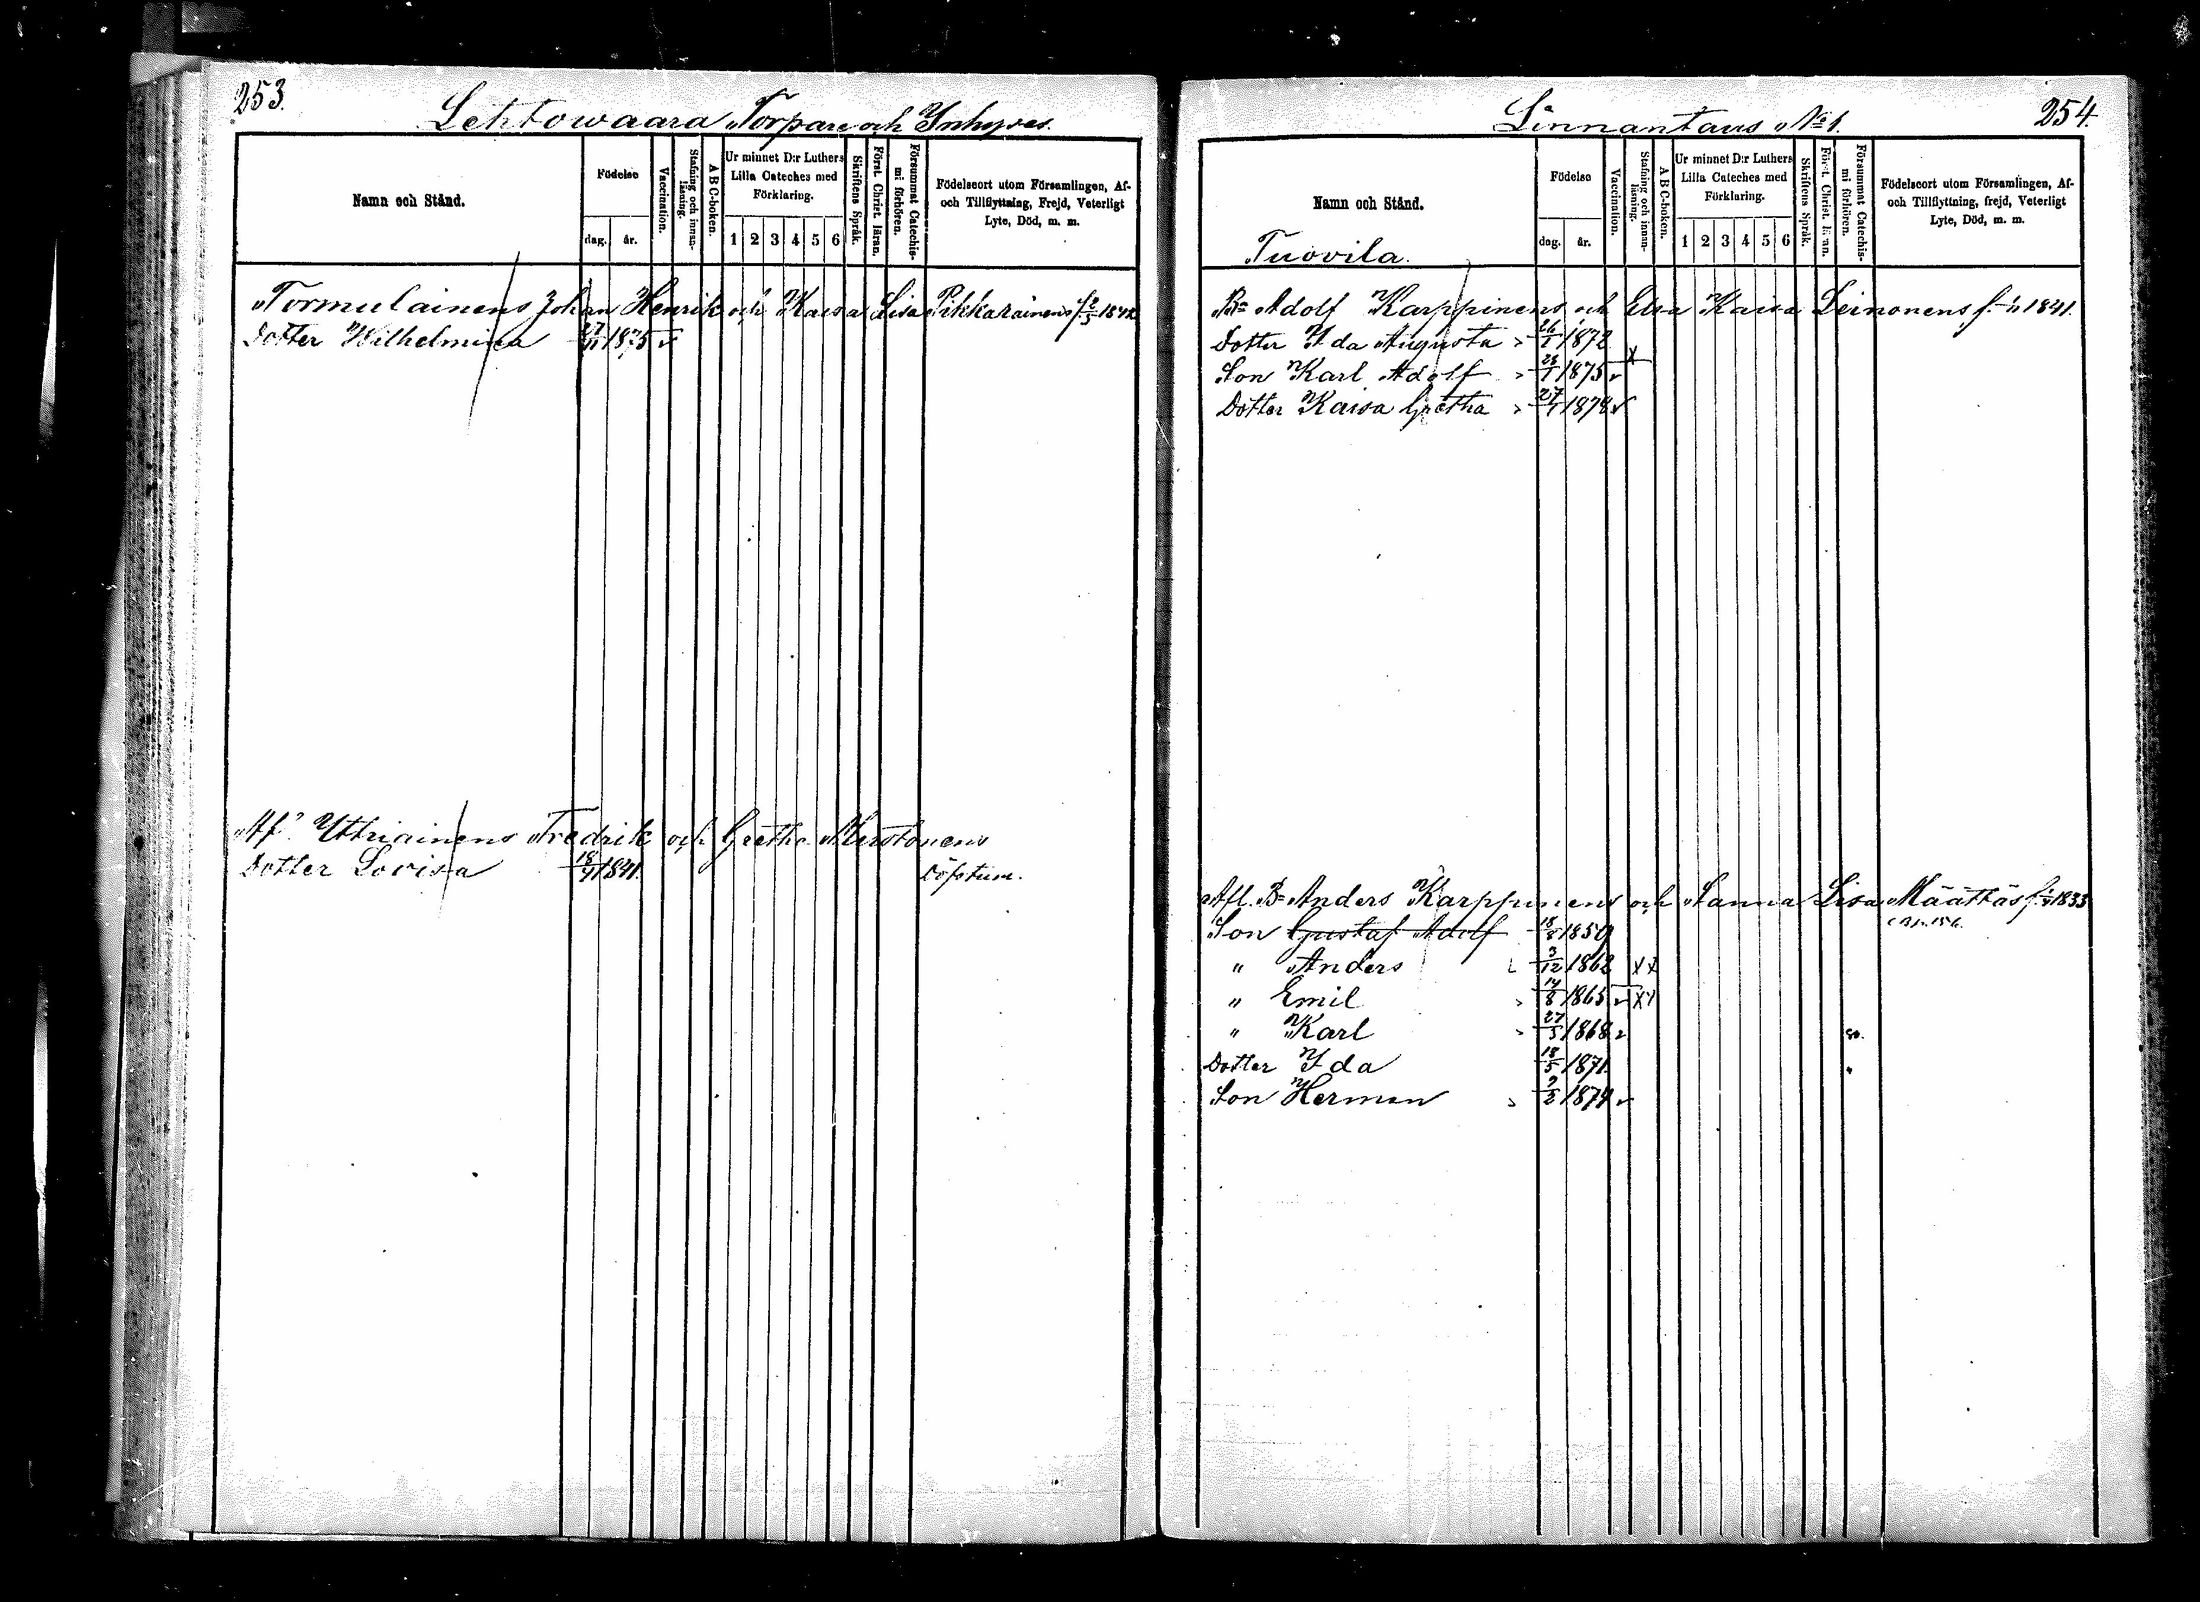 253.
Lehtowaara Torpare och Inhyses.
Namn och Stånd.
Födelse
dag. år.
Vaccination.
Stafning och innanläsning.
ABC-boken.
Ur minnet D:r Luthers Lilla Cateches med Förklaring.
1 2 3 4 5 6
Skriftens Språk.
Först. Christ. läran.
Försummat Catechismi förhören.
Födelseort utom Församlingen, Af- och Tillflyttning, Frejd, Veterligt Lyte, Död, m. m.
Tormulainens Johan Henrik och Kaisa Lisa Pikkarainens f. 1842
Dotter Wilhelmina 27/11 1875
Af. Yttriainens Fredrik och Gretha
Dotter Lovisa 18/11 1841. Döfstum.
254.
Linnantaus No 1.
Namn och Stånd.
Tuovila.
Födelse
dag. år.
Vaccination.
Stafning och innanläsning.
ABC-boken.
Ur minnet D:r Luthers Lilla Cateches med Förklaring.
1 2 3 4 5 6
Skriftens Språk.
Först. Christ. läran.
Försummat Catechismi förhören.
Födelseort utom Församlingen, Af- och Tillflyttning, frejd, Veterligt Lyte, Död, m. m.
Bn Adolf Karppinens och Elsa Kaisa Leinonens f. 1841.
Dotter Ida Augusta 26/1 1872
Son Karl Adolf 1875
Dotter Kaisa Gretha 27/1 1878
Afl. Bn Anders Karppinens och Sanna Lisa Määttäs f. 1833
Son Gustaf Adolf 18/8 1859
" Anders 2/12 1862 X X
" Emil 14/8 1865 X X
" Karl 27/5 1868
Dotter Ida 18/5 1871
Son Herman 2/2 1874